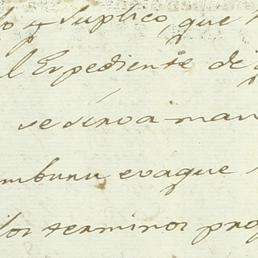 y Suplico, que
el Expediente de
se sirva man
evaque
los terminos pro